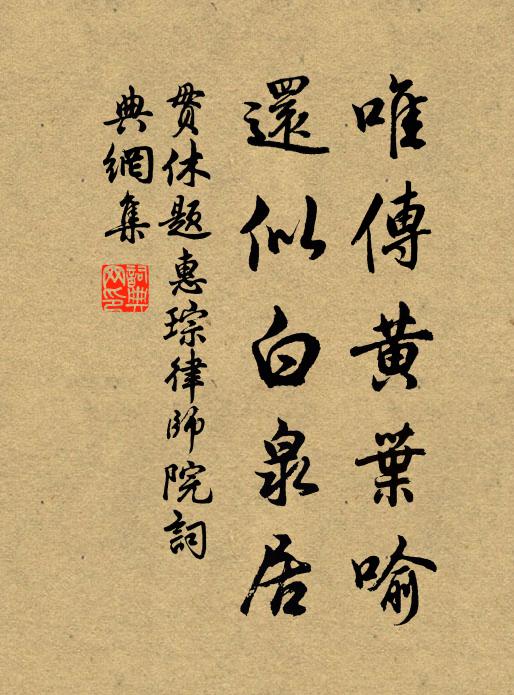 唯傳黃葉喻
還似白泉居
貫休題惠琮律師院詞
典網集
詞典網印